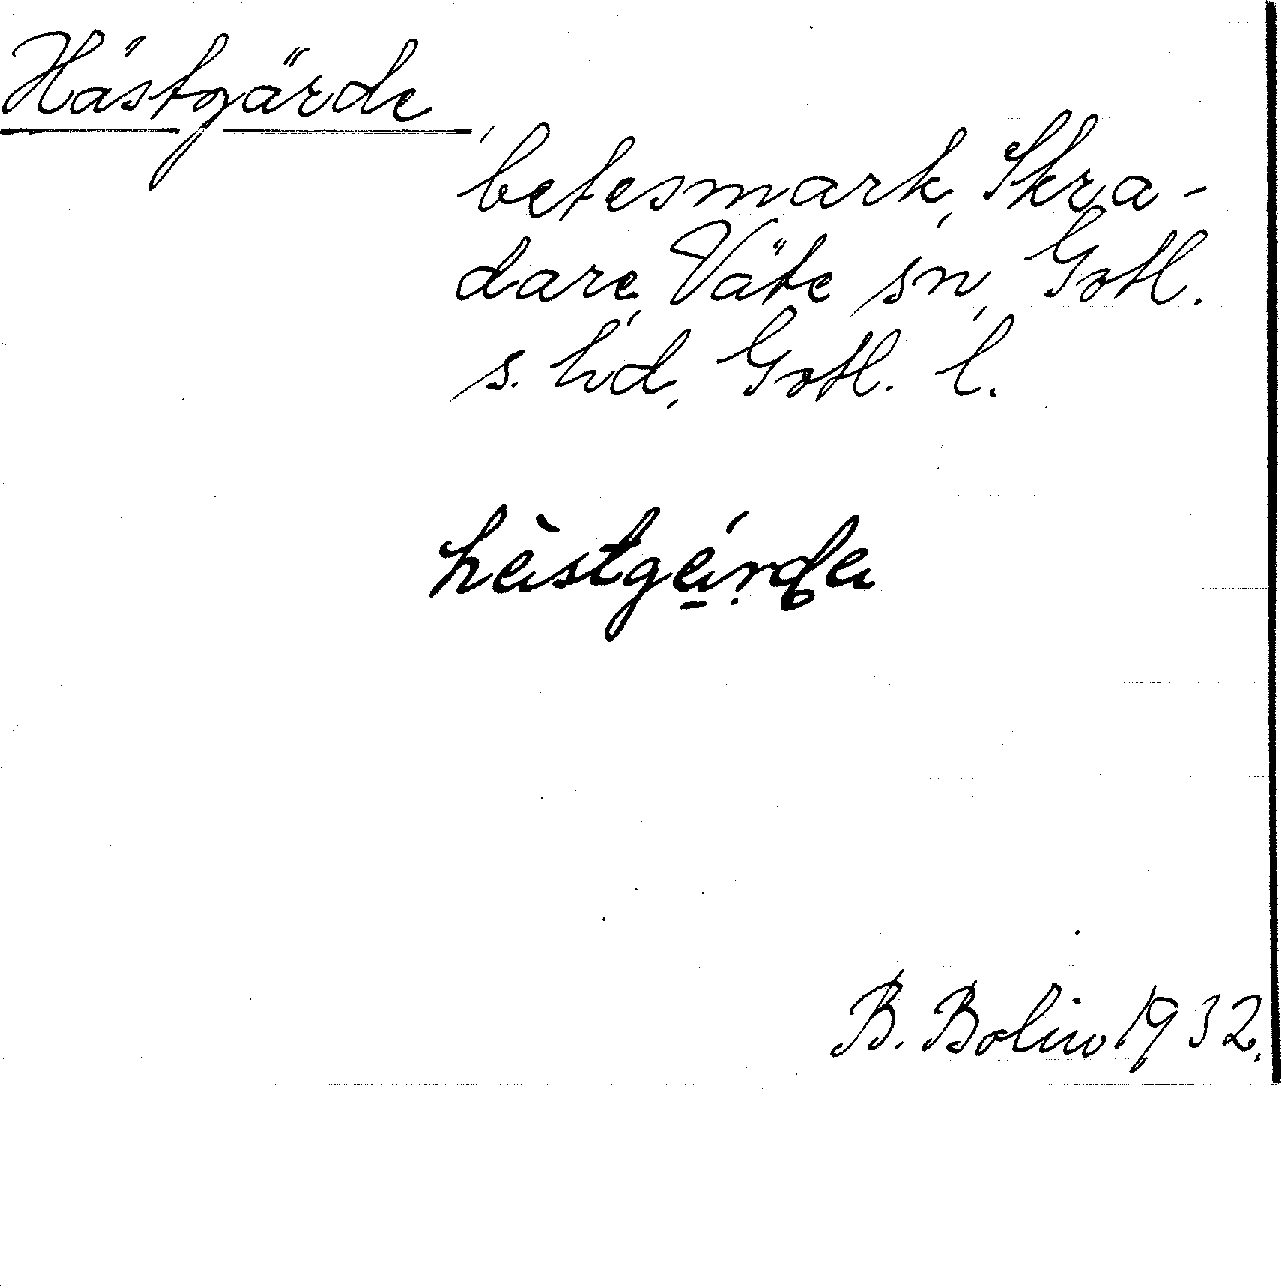 Hästgärde,
betesmark, Skra-
dare, Väte sn, Gotl.
s. hd, Gotl. l.
hästgärda
B. Bolin 1932.